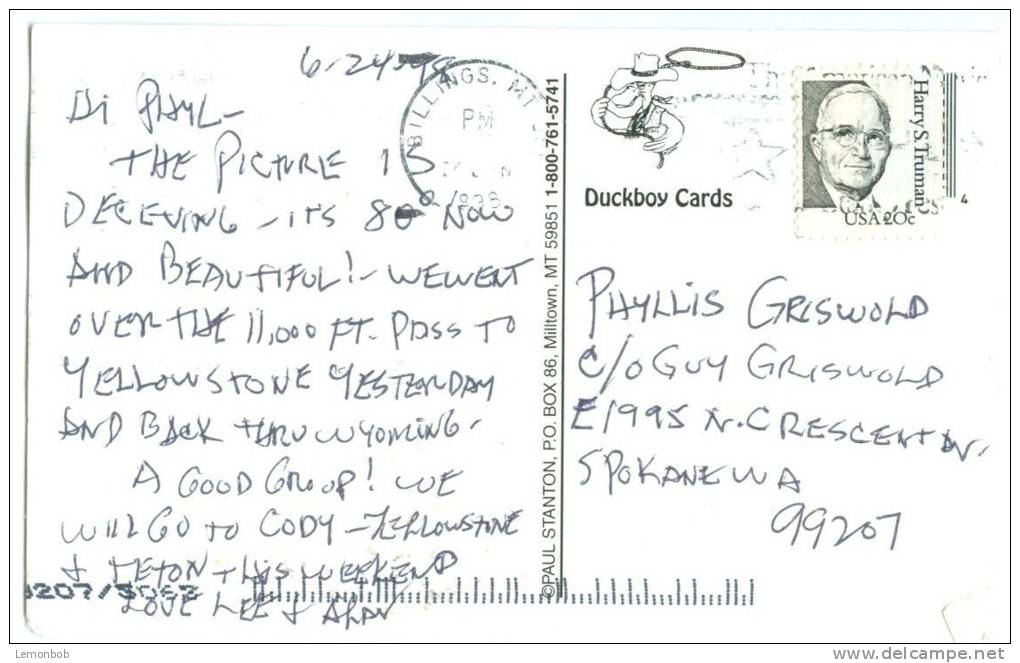 6-24-98
Hi PHYL-
THE PICTURE IS
DECEVING - IT'S 80° NOW
AND BEAUTIFUL! - WE WENT
OVER THE 11,000 FT. PASS TO
YELLOWSTONE YESTERDAY
AND BACK THRU WYOMING.
A GOOD GROUP! WE
WILL GO TO CODY - YELLOWSTONE
& TETON THIS WEEKEND
LOVE LEE & ALAN
BILLINGS, MT
PM
1998
©PAUL STANTON, P.O. BOX 86, Milltown, MT 59851 1-800-761-5741
Duckboy Cards
Harry S. Truman
USA 20c
4
PHYLLIS GRISWOLD
C/O GUY GRISWOLD
E1995 N. CRESCENT DR.
SPOKANE WA
99207
Lemonbob
delcampe.net